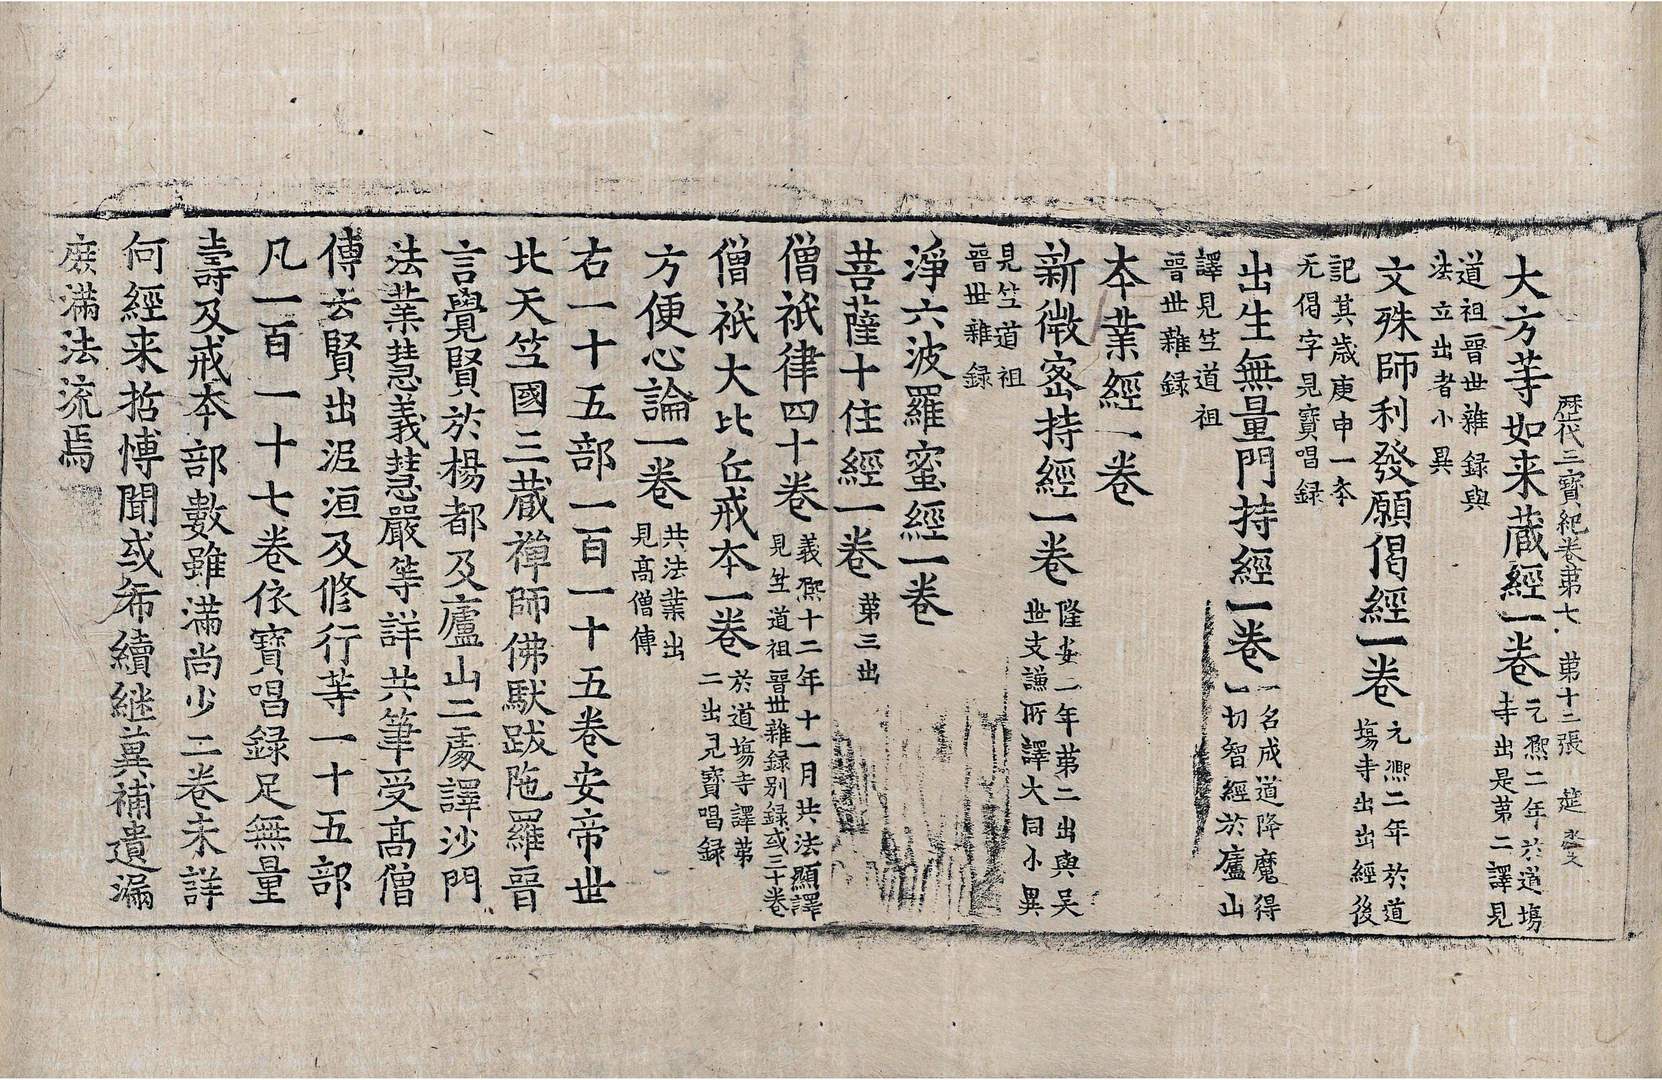 歴代三寶紀卷第七 第十二張 莚
大方等如来蔵經一卷 元熈二年於道塲寺出是第二譯見
道祖晉世雜録與法立出者小異
文殊師利發願偈經一卷 元熈二年於道塲寺出出經後
記其歳庚申一本无偈字見寶唱録
出生無量門持經一卷 一名成道降魔得一切智經於廬山
譯見竺道祖晉世雜録
本業經一卷
新微宻持經一卷 隆安二年第二出與吴世支謙所譯大同小異
見竺道祖晉世雜録
淨六波羅蜜經一卷
菩薩十住經一卷 第三出
僧祇律四十卷 義熈十二年十一月共法顯譯見竺道祖晉世雜録别録或三十卷
僧祇大比丘戒本一卷 於道塲寺譯第二出見寶唱録
方便心論一卷 共法業出見髙僧傳
右一十五部一百一十五卷安帝世
北天竺國三蔵禪師佛馱跋陁羅晉
言覺賢於楊都及廬山二處譯沙門
法業慧義慧嚴等詳共筆受髙僧
傳云賢出泥洹及修行等一十五部
凡一百一十七卷依寶唱録足無量
壽及戒本部數雖滿尚少二卷未詳
何經来哲慱聞或希續継兾補遺漏
庻滿法流焉